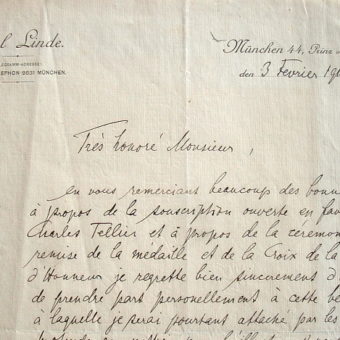 l Linde.
München 44, Prinz
TELEPHON 9631 MÜNCHEN.
den 3 Fevrier 19
Très honoré Monsieur,
en vous remerciant beaucoup des bonn
à propos de la souscription ouverte en fav
Charles Tellier et à propos de la cérémon
remise de la médaille et de la Croix de la
d'Honneur je regrette bien sincerement d'
de prendre part personellement à cette be
à laquelle je serai pourtant attaché par les